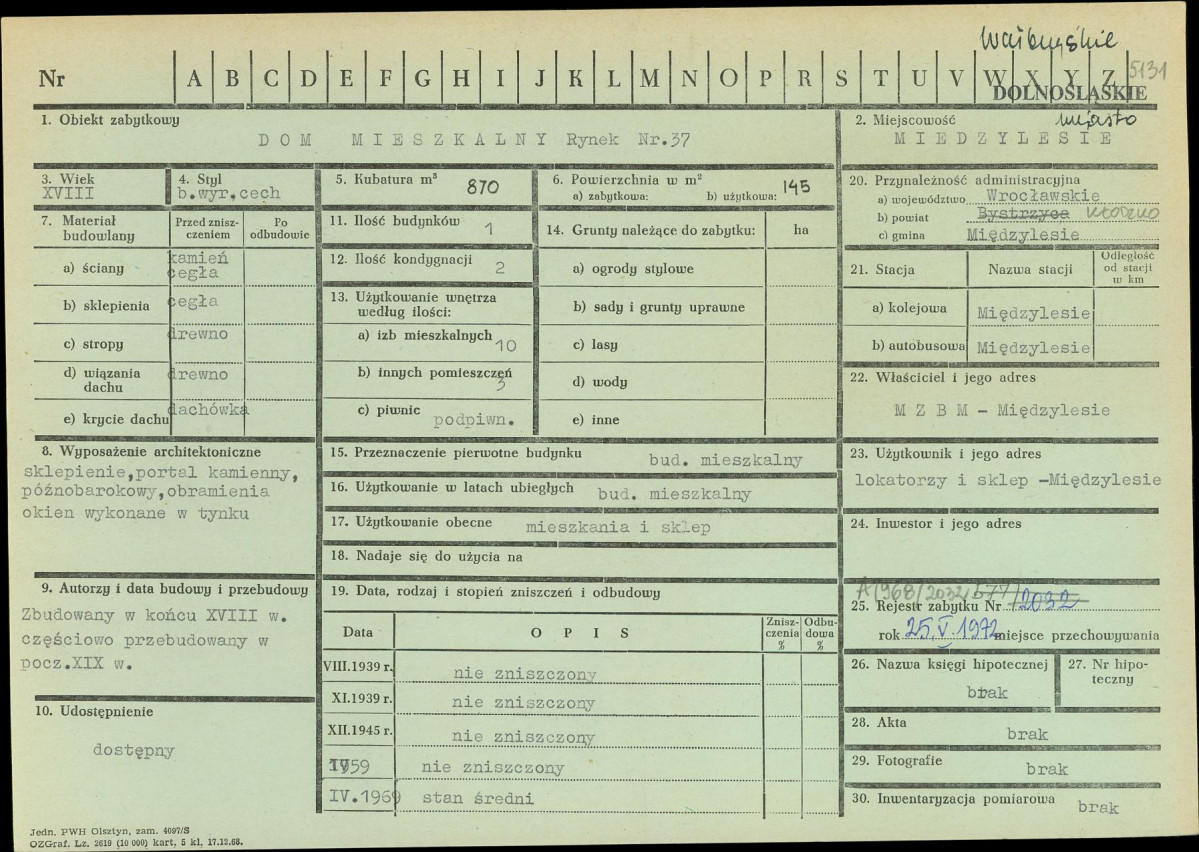 wałbrzyskie
5131
Nr A B C D E F G H I J K L M N O P R S T U V W X Y Z
DOLNOŚLĄSKIE
1. Obiekt zabytkowy
DOM MIESZKALNY Rynek Nr.37
2. Miejscowość miasto
MIEDZYLESIE
3. Wiek
XVIII
4. Styl
b.wyr.cech
5. Kubatura m³ 870
6. Powierzchnia w m²
a) zabytkowa: b) użytkowa: 145
7. Materiał budowlany
Przed zniszczeniem
Po odbudowie
a) ściany kamień cegła
b) sklepienia cegła
c) stropy drewno
d) wiązania dachu drewno
e) krycie dachu dachówka
11. Ilość budynków 1
12. Ilość kondygnacji 2
13. Użytkowanie wnętrza
według ilości:
a) izb mieszkalnych 10
b) innych pomieszczeń 3
c) piwnic podpiwn.
14. Grunty należące do zabytku: ha
a) ogrody stylowe
b) sady i grunty uprawne
c) lasy
d) wody
e) inne
20. Przynależność administracyjna
a) województwo Wrocławskie
b) powiat Bystrzyca Kłodzko
c) gmina Międzylesie
21. Stacja Nazwa stacji Odległość od stacji w km
a) kolejowa Międzylesie
b) autobusowa Międzylesie
22. Właściciel i jego adres
M Z B M - Międzylesie
8. Wyposażenie architektoniczne
sklepienie,portal kamienny,
późnobarokowy,obramienia
okien wykonane w tynku
15. Przeznaczenie pierwotne budynku bud. mieszkalny
16. Użytkowanie w latach ubiegłych bud. mieszkalny
17. Użytkowanie obecne mieszkania i sklep
18. Nadaje się do użycia na
23. Użytkownik i jego adres
lokatorzy i sklep -Międzylesie
24. Inwestor i jego adres
9. Autorzy i data budowy i przebudowy
Zbudowany w końcu XVIII w.
częściowo przebudowany w
pocz.XIX w.
10. Udostępnienie
dostępny
19. Data, rodzaj i stopień zniszczeń i odbudowy
Data OPIS Zniszczenia % Odbudowa %
VIII.1939 r. nie zniszczony
XI.1939 r. nie zniszczony
XII.1945 r. nie zniszczony
1959 nie zniszczony
IV.1969 stan średni
A/1968/2032/577/
25. Rejestr zabytku Nr 2032
rok 25.V.1972 miejsce przechowywania
26. Nazwa księgi hipotecznej
brak
27. Nr hipoteczny
28. Akta
brak
29. Fotografie
brak
30. Inwentaryzacja pomiarowa brak
Jedn. PWH Olsztyn, zam. 4097/S
OZGraf. Lz. 2619 (10 000) kart, 5 kl, 17.12.68.